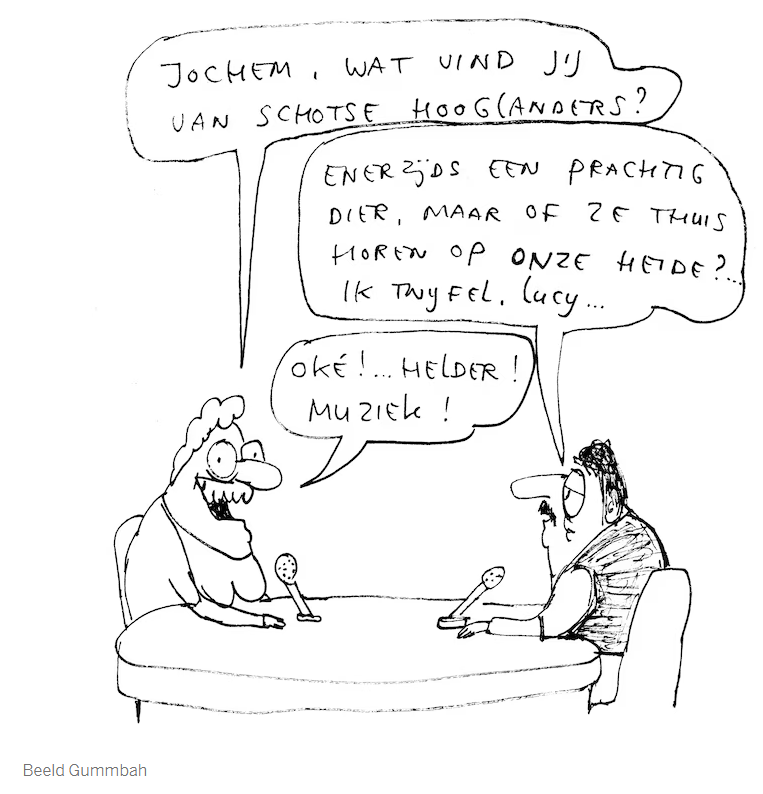 JOCHEM, WAT VIND JIJ
VAN SCHOTSE HOOGLANDERS?
ENERZIJDS EEN PRACHTIG
DIER, MAAR OF ZE THUIS
HOREN OP ONZE HEIDE?...
IK TWYFEL, LUCY...
OKÉ!... HELDER!
MUZIEK!
Beeld Gummbah